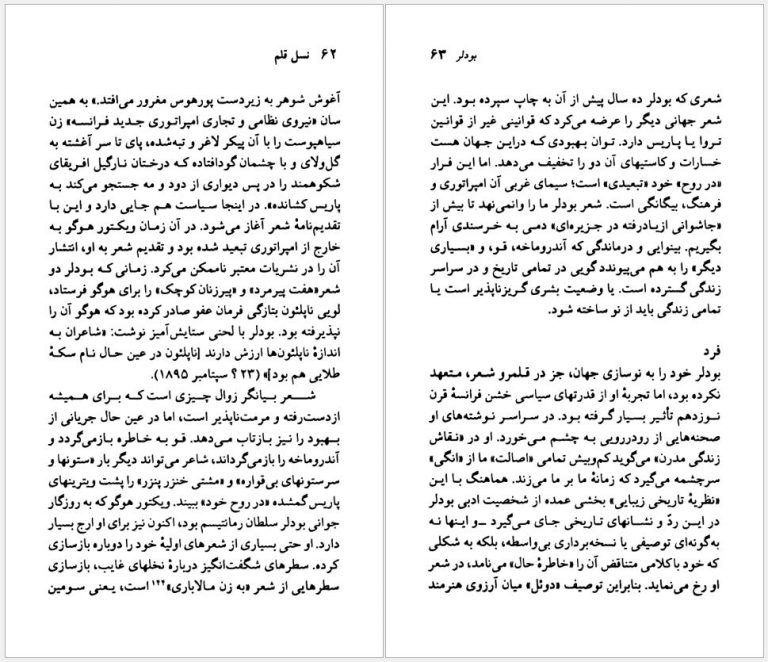 ۶۲ نسل قلم
آغوش شوهر به زیردست پورهوس مغرور می‌افتد.» به همین
سان «نیروی نظامی و تجاری امپراتوری جدید فرانسه» زن
سیاهپوست را با آن پیکر لاغر و تبه‌شده، پای تا سر آغشته به
گل‌ولای و با چشمان گودافتاده که درختان نارگیل افریقای
شکوهمند را در پس دیواری از دود و مه جستجو می‌کند به
پاریس کشانده». در اینجا سیاست هم جایی دارد و این با
تقدیم‌نامهٔ شعر آغاز می‌شود. در آن زمان ویکتور هوگو به
خارج از امپراتوری تبعید شده بود و تقدیم شعر به او، انتشار
آن را در نشریات معتبر ناممکن می‌کرد. زمانی که بودلر دو
شعر«هفت پیرمرد» و «پیرزنان کوچک» را برای هوگو فرستاد،
لویی ناپلئون بتازگی فرمان عفو صادر کرده بود که هوگو آن را
نپذیرفته بود. بودلر با لحنی ستایش‌آمیز نوشت: «شاعران به
اندازهٔ ناپلئون‌ها ارزش دارند [ناپلئون در عین حال نام سکهٔ
طلایی هم بود]» (۲۳ ؟ سپتامبر ۱۸۹۵).
شعر بیانگر زوال چیزی است که برای همیشه
ازدست‌رفته و مرمت‌ناپذیر است، اما در عین حال جریانی از
بهبود را نیز بازتاب می‌دهد. قو به خاطره بازمی‌گردد و
آندروماخه را بازمی‌گرداند، شاعر می‌تواند دیگر بار «ستونها و
سرستونهای بی‌قواره» و «مشتی خنزر پنزر» را پشت ویترینهای
پاریس گمشده «در روح خود» ببیند. ویکتور هوگو که به روزگار
جوانی بودلر سلطان رمانتیسم بود، اکنون نیز برای او ارج بسیار
دارد. او حتی بسیاری از شعرهای اولیهٔ خود را دوباره بازسازی
کرده. سطرهای شگفت‌انگیز دربارهٔ نخلهای غایب، بازسازی
سطرهایی از شعر «به زن مالاباری»۱۲۴ است، یعنی سومین
بودلر ۶۳
شعری که بودلر ده سال پیش از آن به چاپ سپرده بود. این
شعر جهانی دیگر را عرضه می‌کرد که قوانینی غیر از قوانین
تروا یا پاریس دارد. توان بهبودی که دراین جهان هست
خسارات و کاستیهای آن دو را تخفیف می‌دهد. اما این فرار
«در روح» خود «تبعیدی» است؛ سیمای غربی آن امپراتوری و
فرهنگ، بیگانگی است. شعر بودلر ما را وانمی‌نهد تا بیش از
«جاشوانی ازیادرفته در جزیره‌ای» دمی به خرسندی آرام
بگیریم. بینوایی و درماندگی که آندروماخه، قو، و «بسیاری
دیگر» را به هم می‌پیوندد گویی در تمامی تاریخ و در سراسر
زندگی گسترده است. یا وضعیت بشری گریزناپذیر است یا
تمامی زندگی باید از نو ساخته شود.
فرد
بودلر خود را به نوسازی جهان، جز در قلمرو شعر، متعهد
نکرده بود، اما تجربهٔ او از قدرتهای سیاسی خشن فرانسهٔ قرن
نوزدهم تأثیر بسیار گرفته بود. در سراسر نوشته‌های او
صحنه‌هایی از رودررویی به چشم می‌خورد. او در «نقاش
زندگی مدرن» می‌گوید کم‌وبیش تمامی «اصالت» ما از «انگی»
سرچشمه می‌گیرد که زمانهٔ ما بر ما می‌زند. هماهنگ با این
«نظریهٔ تاریخی زیبایی» بخشی عمده از شخصیت ادبی بودلر
در این ردّ و نشانهای تاریخی جای می‌گیرد ــ‌و اینها نه
به‌گونه‌ای توصیفی یا نسخه‌برداری بی‌واسطه، بلکه به شکلی
که خود باکلامی متناقض آن را «خاطرهٔ حال» می‌نامد، در شعر
او رخ می‌نماید. بنابراین توصیف «دوئل» میان آرزوی هنرمند